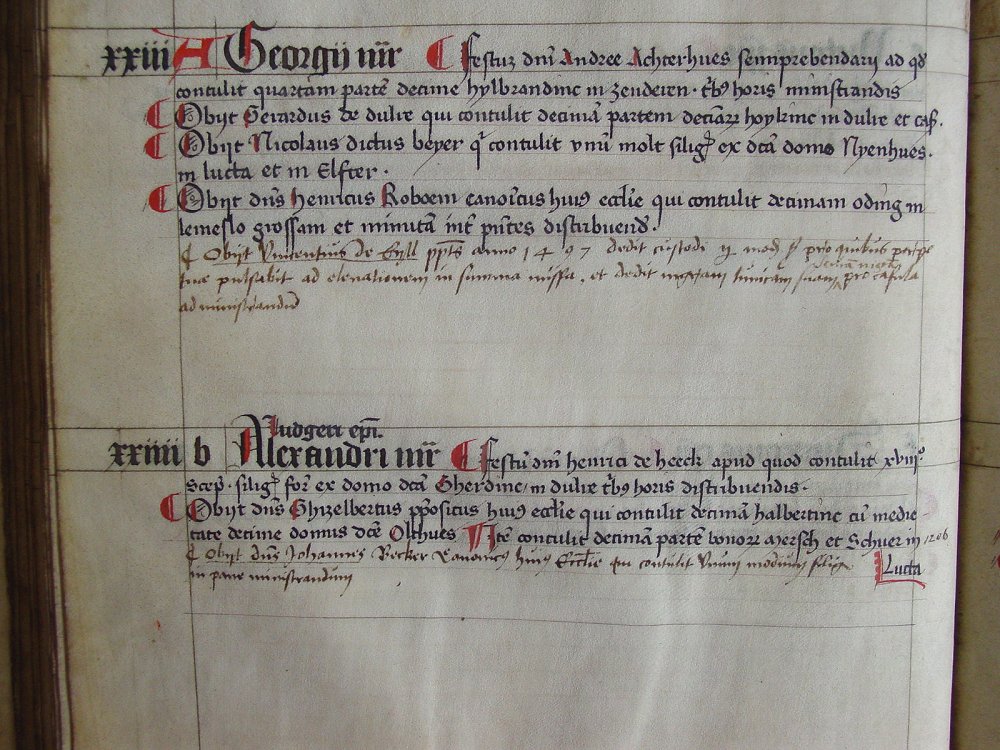 xxiii A Georgij mr̅r ¶ festuz dn̅i Andree Achterhues semiprebendarij ad qd̕
contulit quartam parte̅ decime hylbrandinc in zenderen · t̅b9 horis ministrandis
¶ Obijt Gerardus de dulre qui contulit decima̅ partem decia̅rz hoykinc in dulre et caf.
¶ Obijt Nicolaus dictus beyer q̕ contulit vnu̅ molt silig̕ ex dc̅a domo Nyenhues.
in lucta et in Elfter ·
¶ Obijt dn̅s Henricus Roboem canoi̅cus hui9 eccl̅ie qui contulit decimam oding in
lemeslo grossam et minuta̅ int̕ pn̅tes distribuend̕.
¶ Obijt Vincentius de Eyll pp̅ts anno 1497 dedit custodi ij mod̕ pro quibus perpe
tue pulsabit ad eleuationem in summa missa, et dedit nigram tunicam suam pro casula
ad ministrandu̅
ludgeri ep̅i.
xxiiii b Alexandri mr̅r ¶ festu̅ dn̅i henrici de heeck apud quod contulit xviij°
scep̕ · silig̕ for̕ ex domo dc̅a Gherdinc in dulre t̅b9 horis distribuendis ·
¶ Obijt dn̅s Ghizelbertus pp̅ositus hui9 eccl̅ie qui contulit decima̅ halbertinc cu̅ medie
tate decime domus dc̅e Olthues Ite̅ contulit decima̅ parte̅ bonorz mersch et Schuer in 1206
lucta
¶ Obijt dn̅s Johannis Becker Canonicus huius Eccl̅ie qui contulit Vnum modium siligi̅s
in pane ministrandum